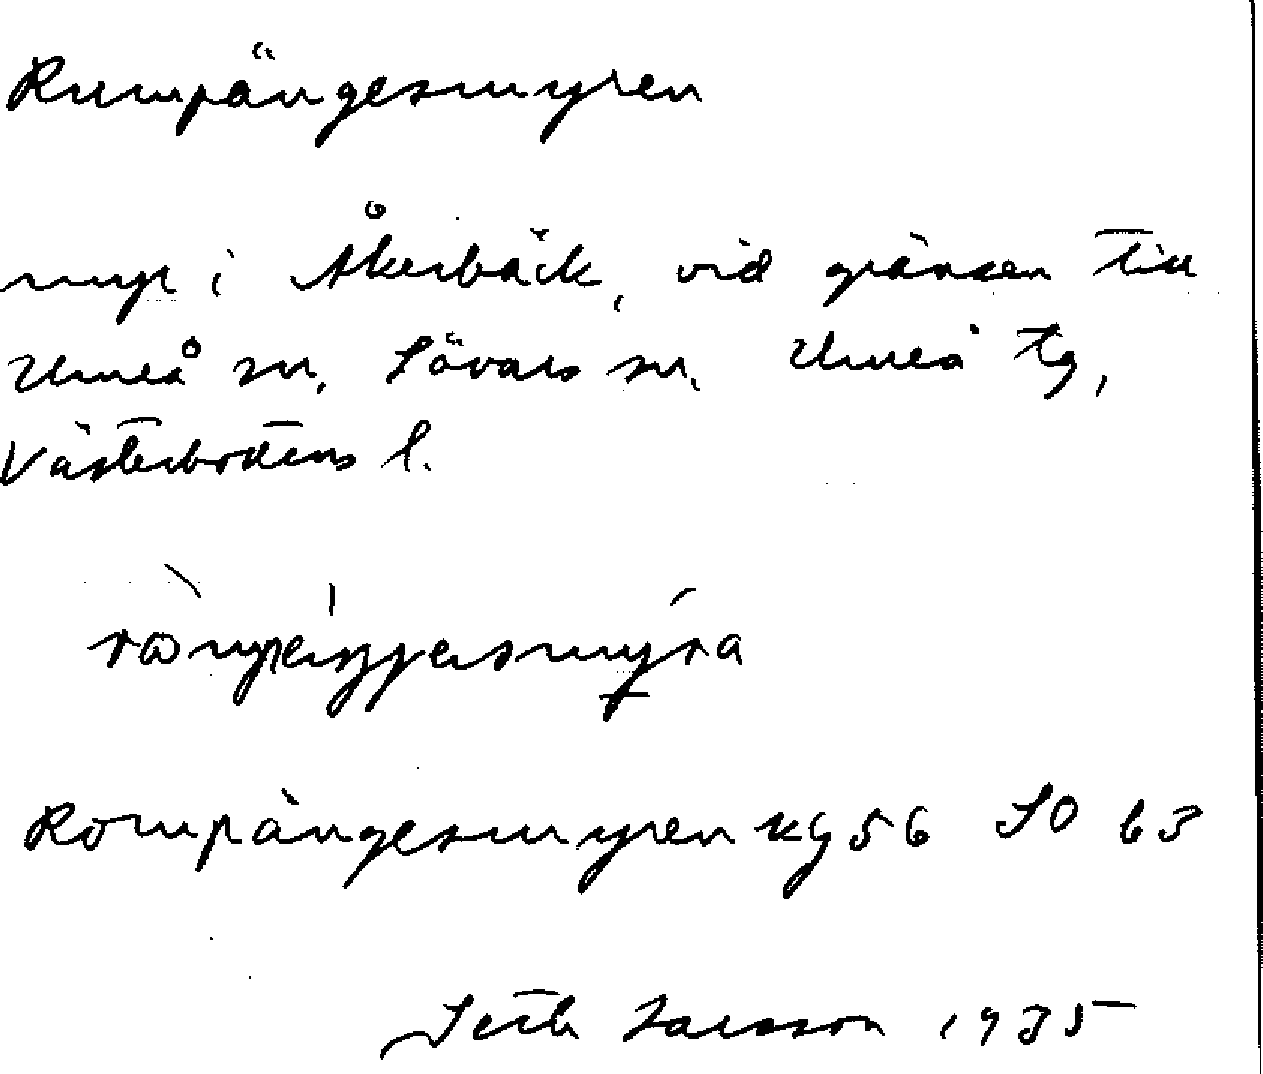 Rumpängesmyren
myr i Åkerbäck, vid gränsen till
Umeå sn, Sävars sn. Umeå tg,
Västerbottens l.
Rompängesmyren kg 56 SO 63
Seth Larsson 1975